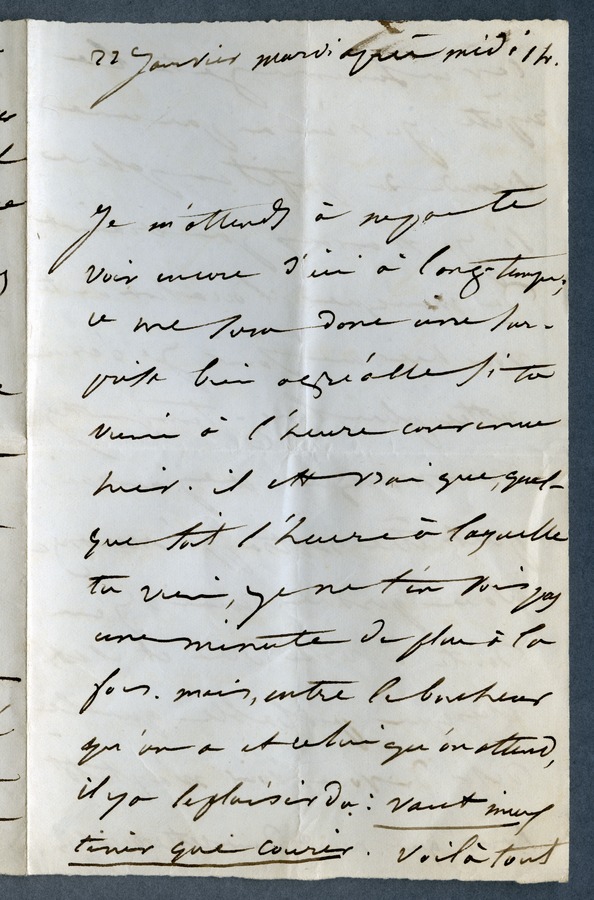 22 Janvier mardi après midi 1h.
Je m'attends à ne pas te
voir encore d'ici à longtemps,
ce me sera donc une sur-
prise bien agréable si tu
viens à l'heure convenue
hier. il est vrai que, quel-
que soit l'heure à laquelle
tu viens, je ne t'en vois pas
une minute de plus à la
fois. mais, entre le bonheur
qu'on a et celui qu'on attend,
il y a le plaisir du : vaut mieux
tenir que courir. Voilà tout